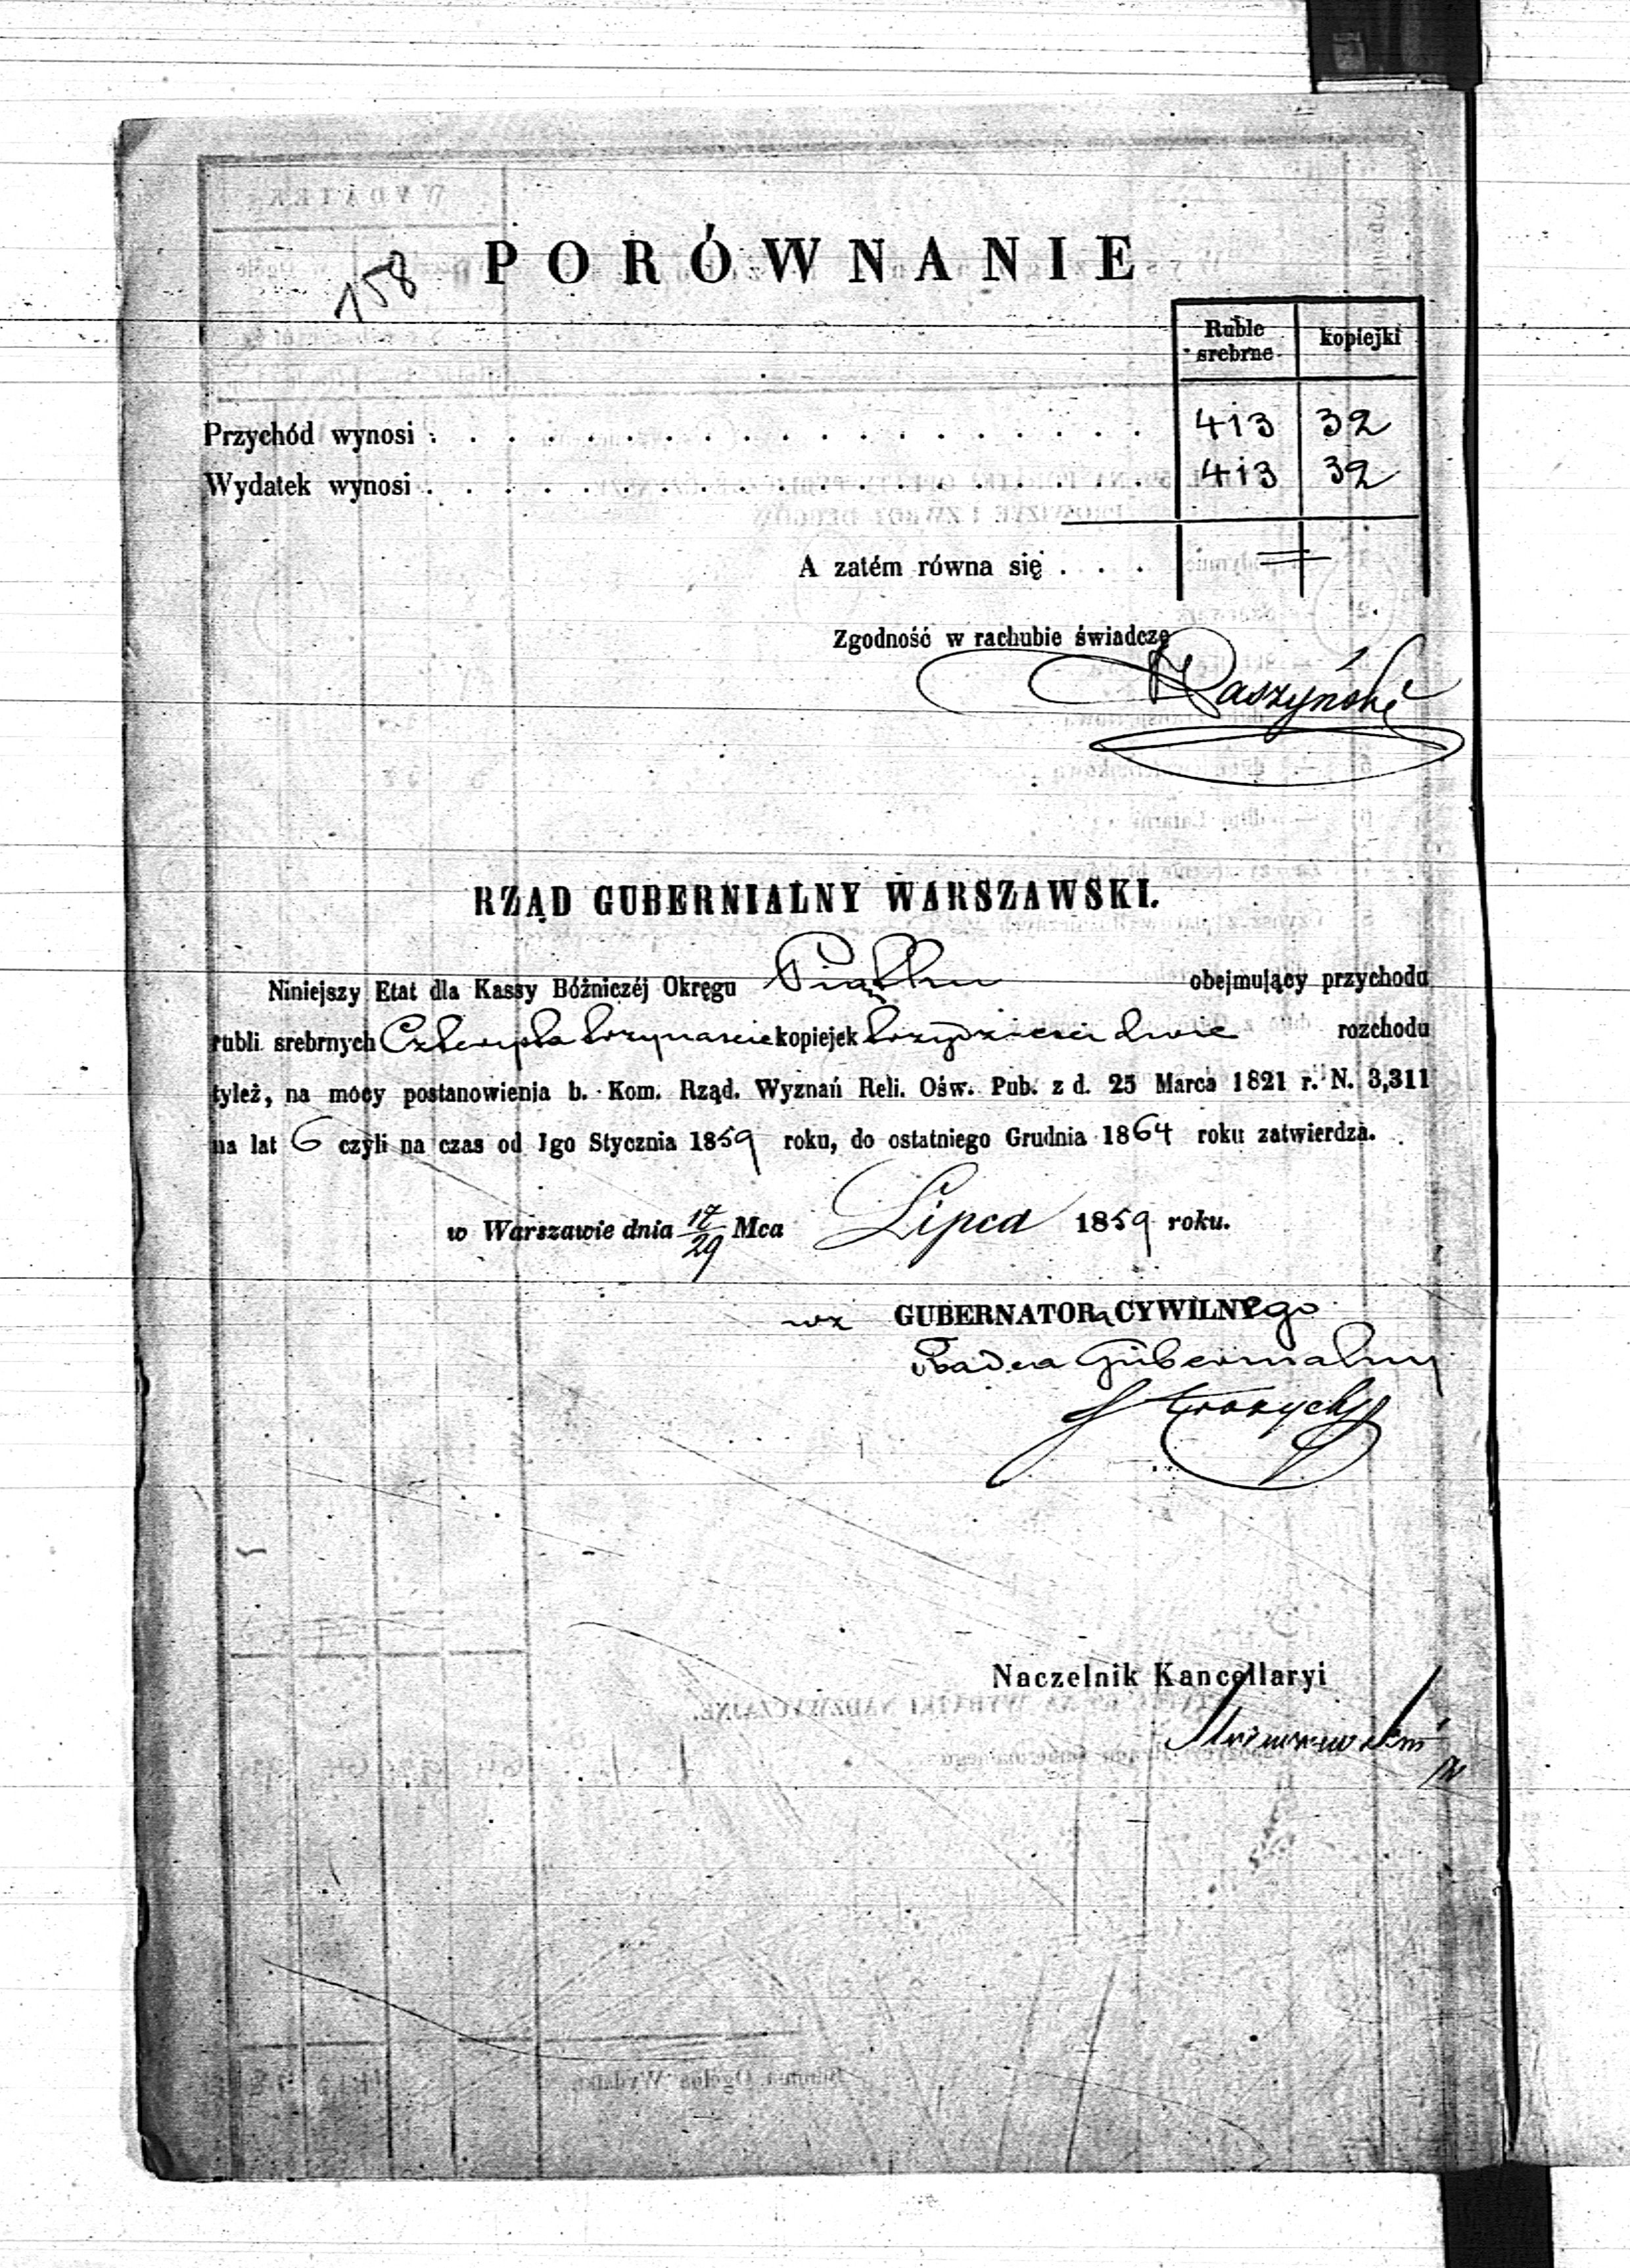 158
PORÓWNANIE
Ruble srebrne kopiejki
Przychód wynosi . . . . . . . . . . . . . . . . . . . 413 32
Wydatek wynosi . . . . . . . . . . . . . . . . . . . 413 32
A zatém równa się . . . =
Zgodność w rachubie świadczę
RZĄD GUBERNIALNY WARSZAWSKI.
Niniejszy Etat dla Kassy Bóżniczéj Okręgu Piątku obejmujący przychodu
rubli srebrnych Czterysta trzynaście kopiejek trzydzieści dwie rozchodu
tyleż, na mocy postanowienia b. Kom. Rząd. Wyznań Reli. Ośw. Pub. z d. 25 Marca 1821 r. N. 3,311
na lat 6 czyli na czas od 1go Stycznia 1859 roku, do ostatniego Grudnia 1864 roku zatwierdza.
w Warszawie dnia 17/29 Mca Lipca 1859 roku.
wz GUBERNATORa CYWILNego
Radca Gubernialny
Naczelnik Kancellaryi